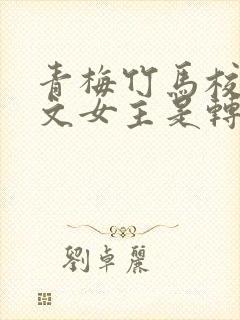 青梅竹馬校
文女主是轉
劉卓麗